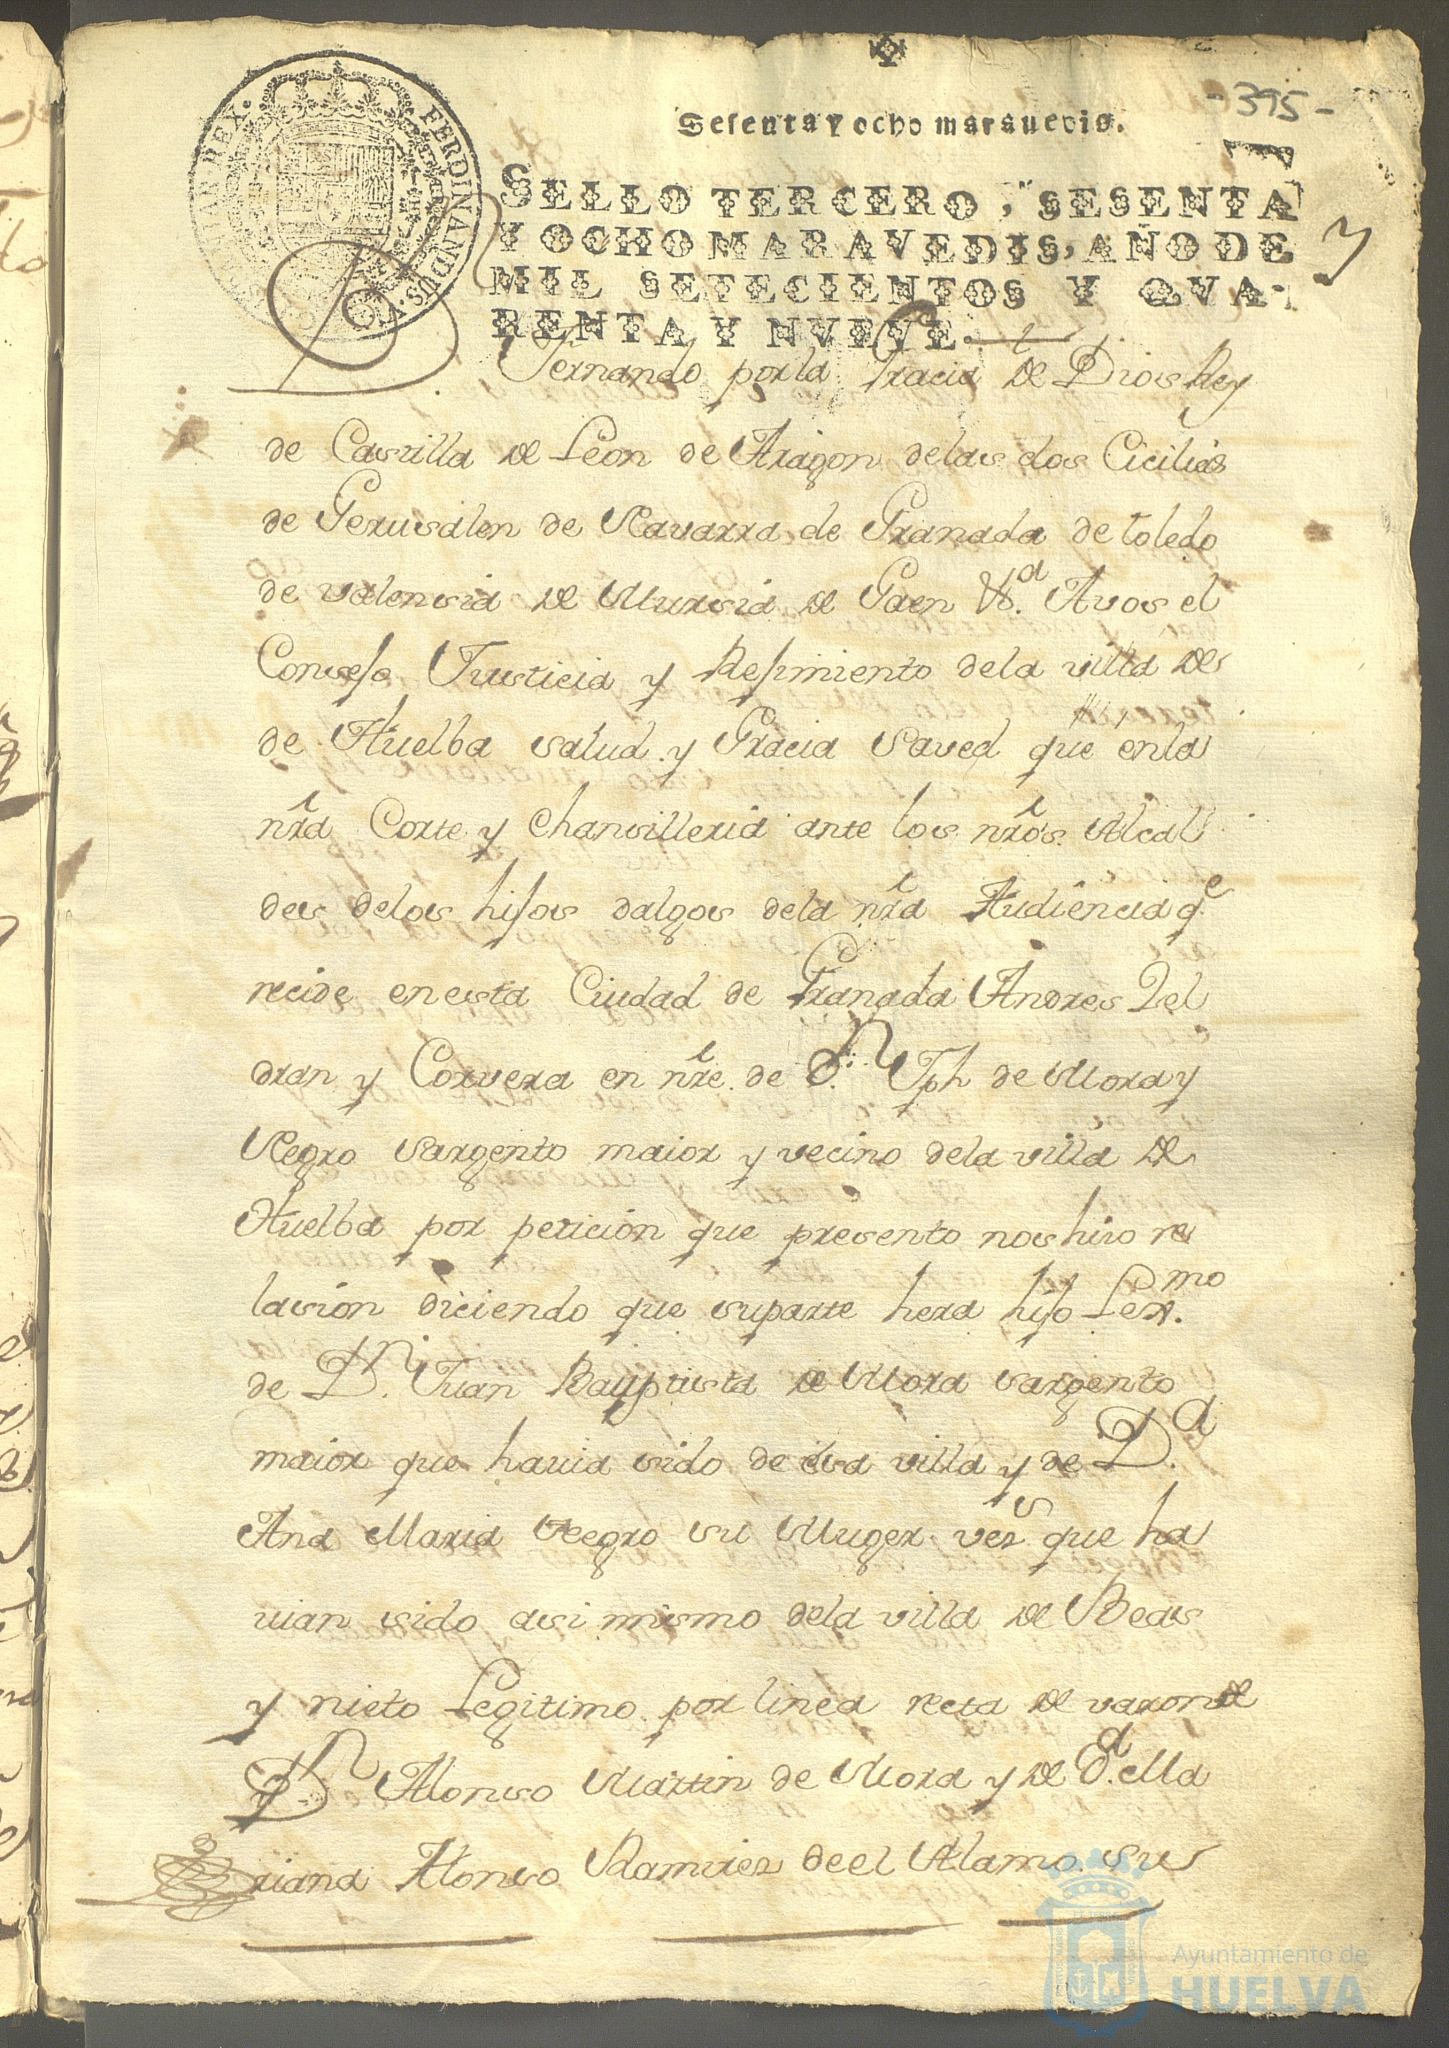 -395-
Sesenta y ocho maravedis.
SELLO TERCERO, SESENTA
Y OCHO MARAVEDIS, AÑO DE
MIL SETECIENTOS Y QVA-
RENTA Y NVEVE.
FERDINANDUS
REX
Fernando por la Gracia de Dios Rey
de Castilla de Leon de Aragon delas dos Cicilias
de Gerusalen de Navarra de Granada de toledo
de valensia de Mursia de Gaen &a. Avos el
Consejo Justicia y Rejimiento dela villa de
de Huelba salud y Gracia Saved que enla
nra Corte y Chansilleria ante los nros. Alcal
des delos hijos dalgos dela nra Audiencia qe
recide en esta Ciudad de Granada Andres Bel
dran y Corvera en nre. de Dn. Jph de Mora y
Negro Sargento maior y vecino dela villa de
Huelba por peticion que presento nos hiso re
lasion diciendo que suparte hera hijo Lexmo.
de Dn. Juan Bauptista de Mora Sargento
maior que hauia sido de esa villa y de Da.
Ana Maria Negro su Muger vezs que ha
uian sido asi mismo dela villa de Beas
y nieto Legitimo por linea recta de varon de
Dn Alonso Martin de Mora y de Da. Ma
riana Alonso Ramires de el Alamo su
Ayuntamiento de
HUELVA